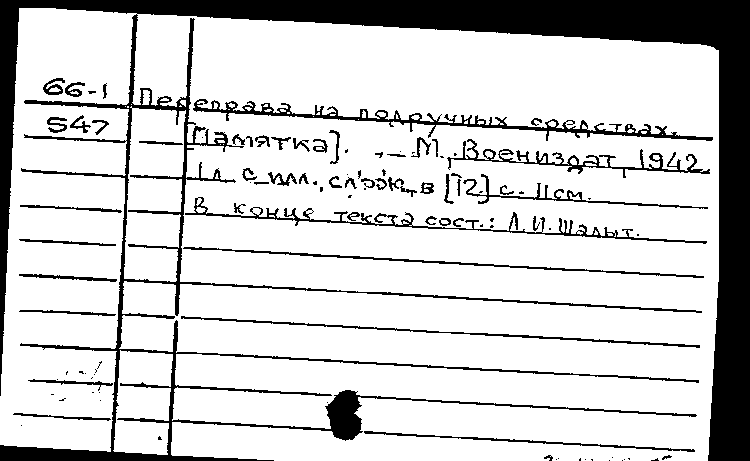 66-1 Переправа на подручных средствах.
547 [Памятка]. – М., Воениздат, 1942.
1 л. с илл., слож. в [12] с. 11 см.
В конце текста сост.: Л.И. Шалыт.